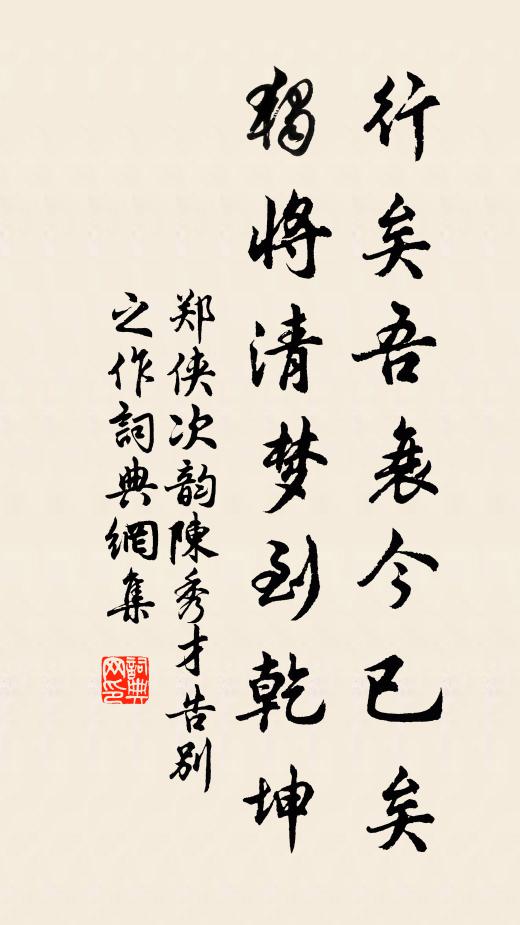 行矣吾衰今已矣
獨将清梦到乾坤
郑侠次韵陳秀才告别
之作詞典網集
詞典网印